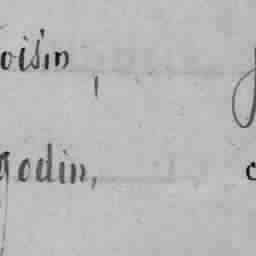 oisin,
godin,